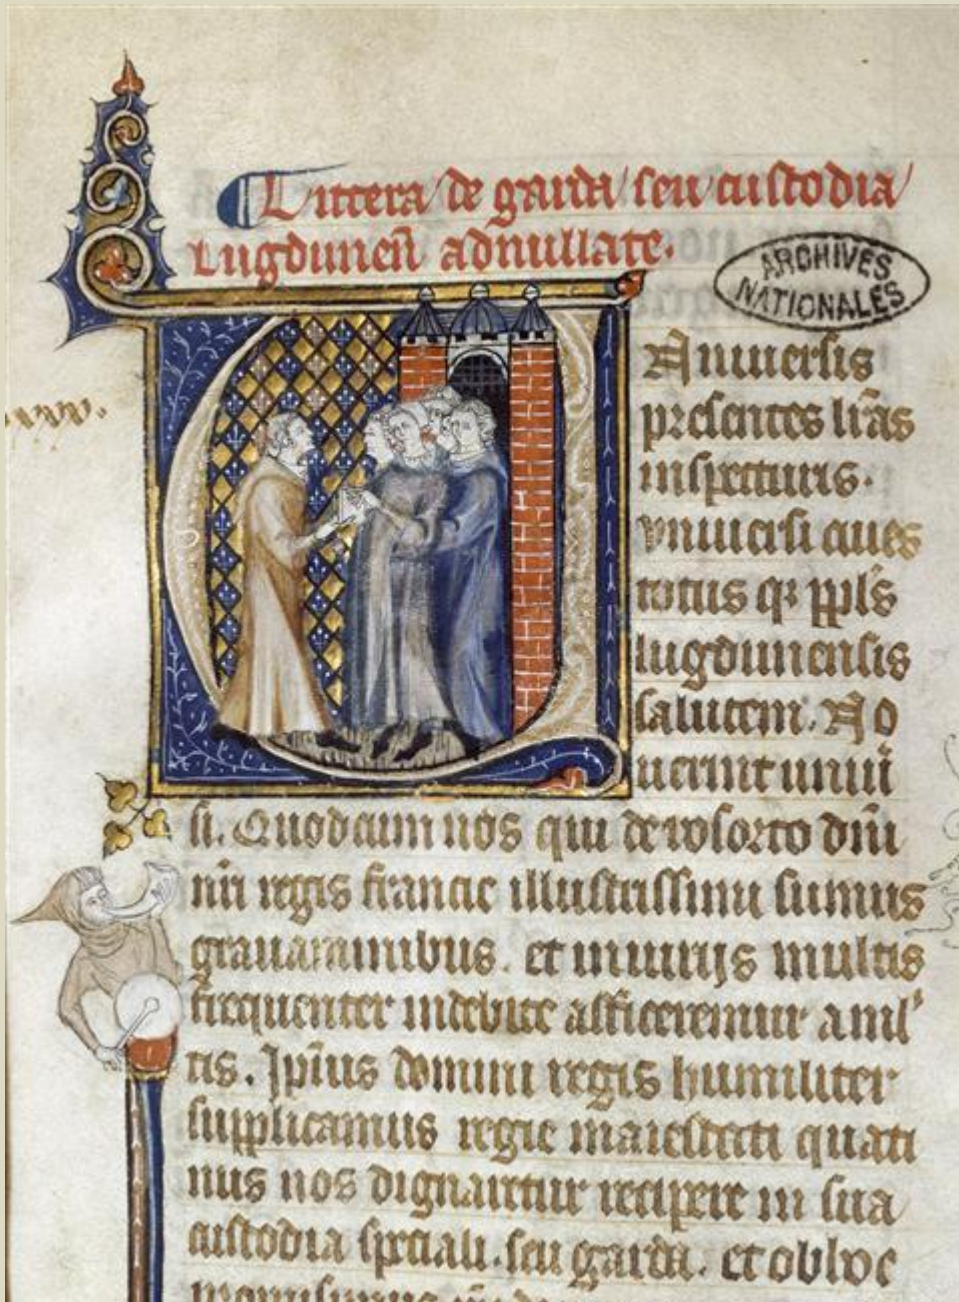 Littera de garda seu custodia
Lugdunen̄ adnullate.
ARCHIVES
NATIONALES
Uniuersis
presentes lr̄as
inspecturis.
vniuersi ciues
totus qꝫ ppl̄s
lugdunensis
salutem. No
uerint uniu̅
si. Quod cum nos qui de ressorto dn̄i
nr̄i regis francie illustrissimi sumus
grauaminibus. et iniurijs multis
frequenter indebite afficeremur a ml'
tis. Ip̄ius domini regis humiliter
supplicamus regie maiestati quati
nus nos dignaretur recipere in sua
custodia speciali. seu garda. et obloc